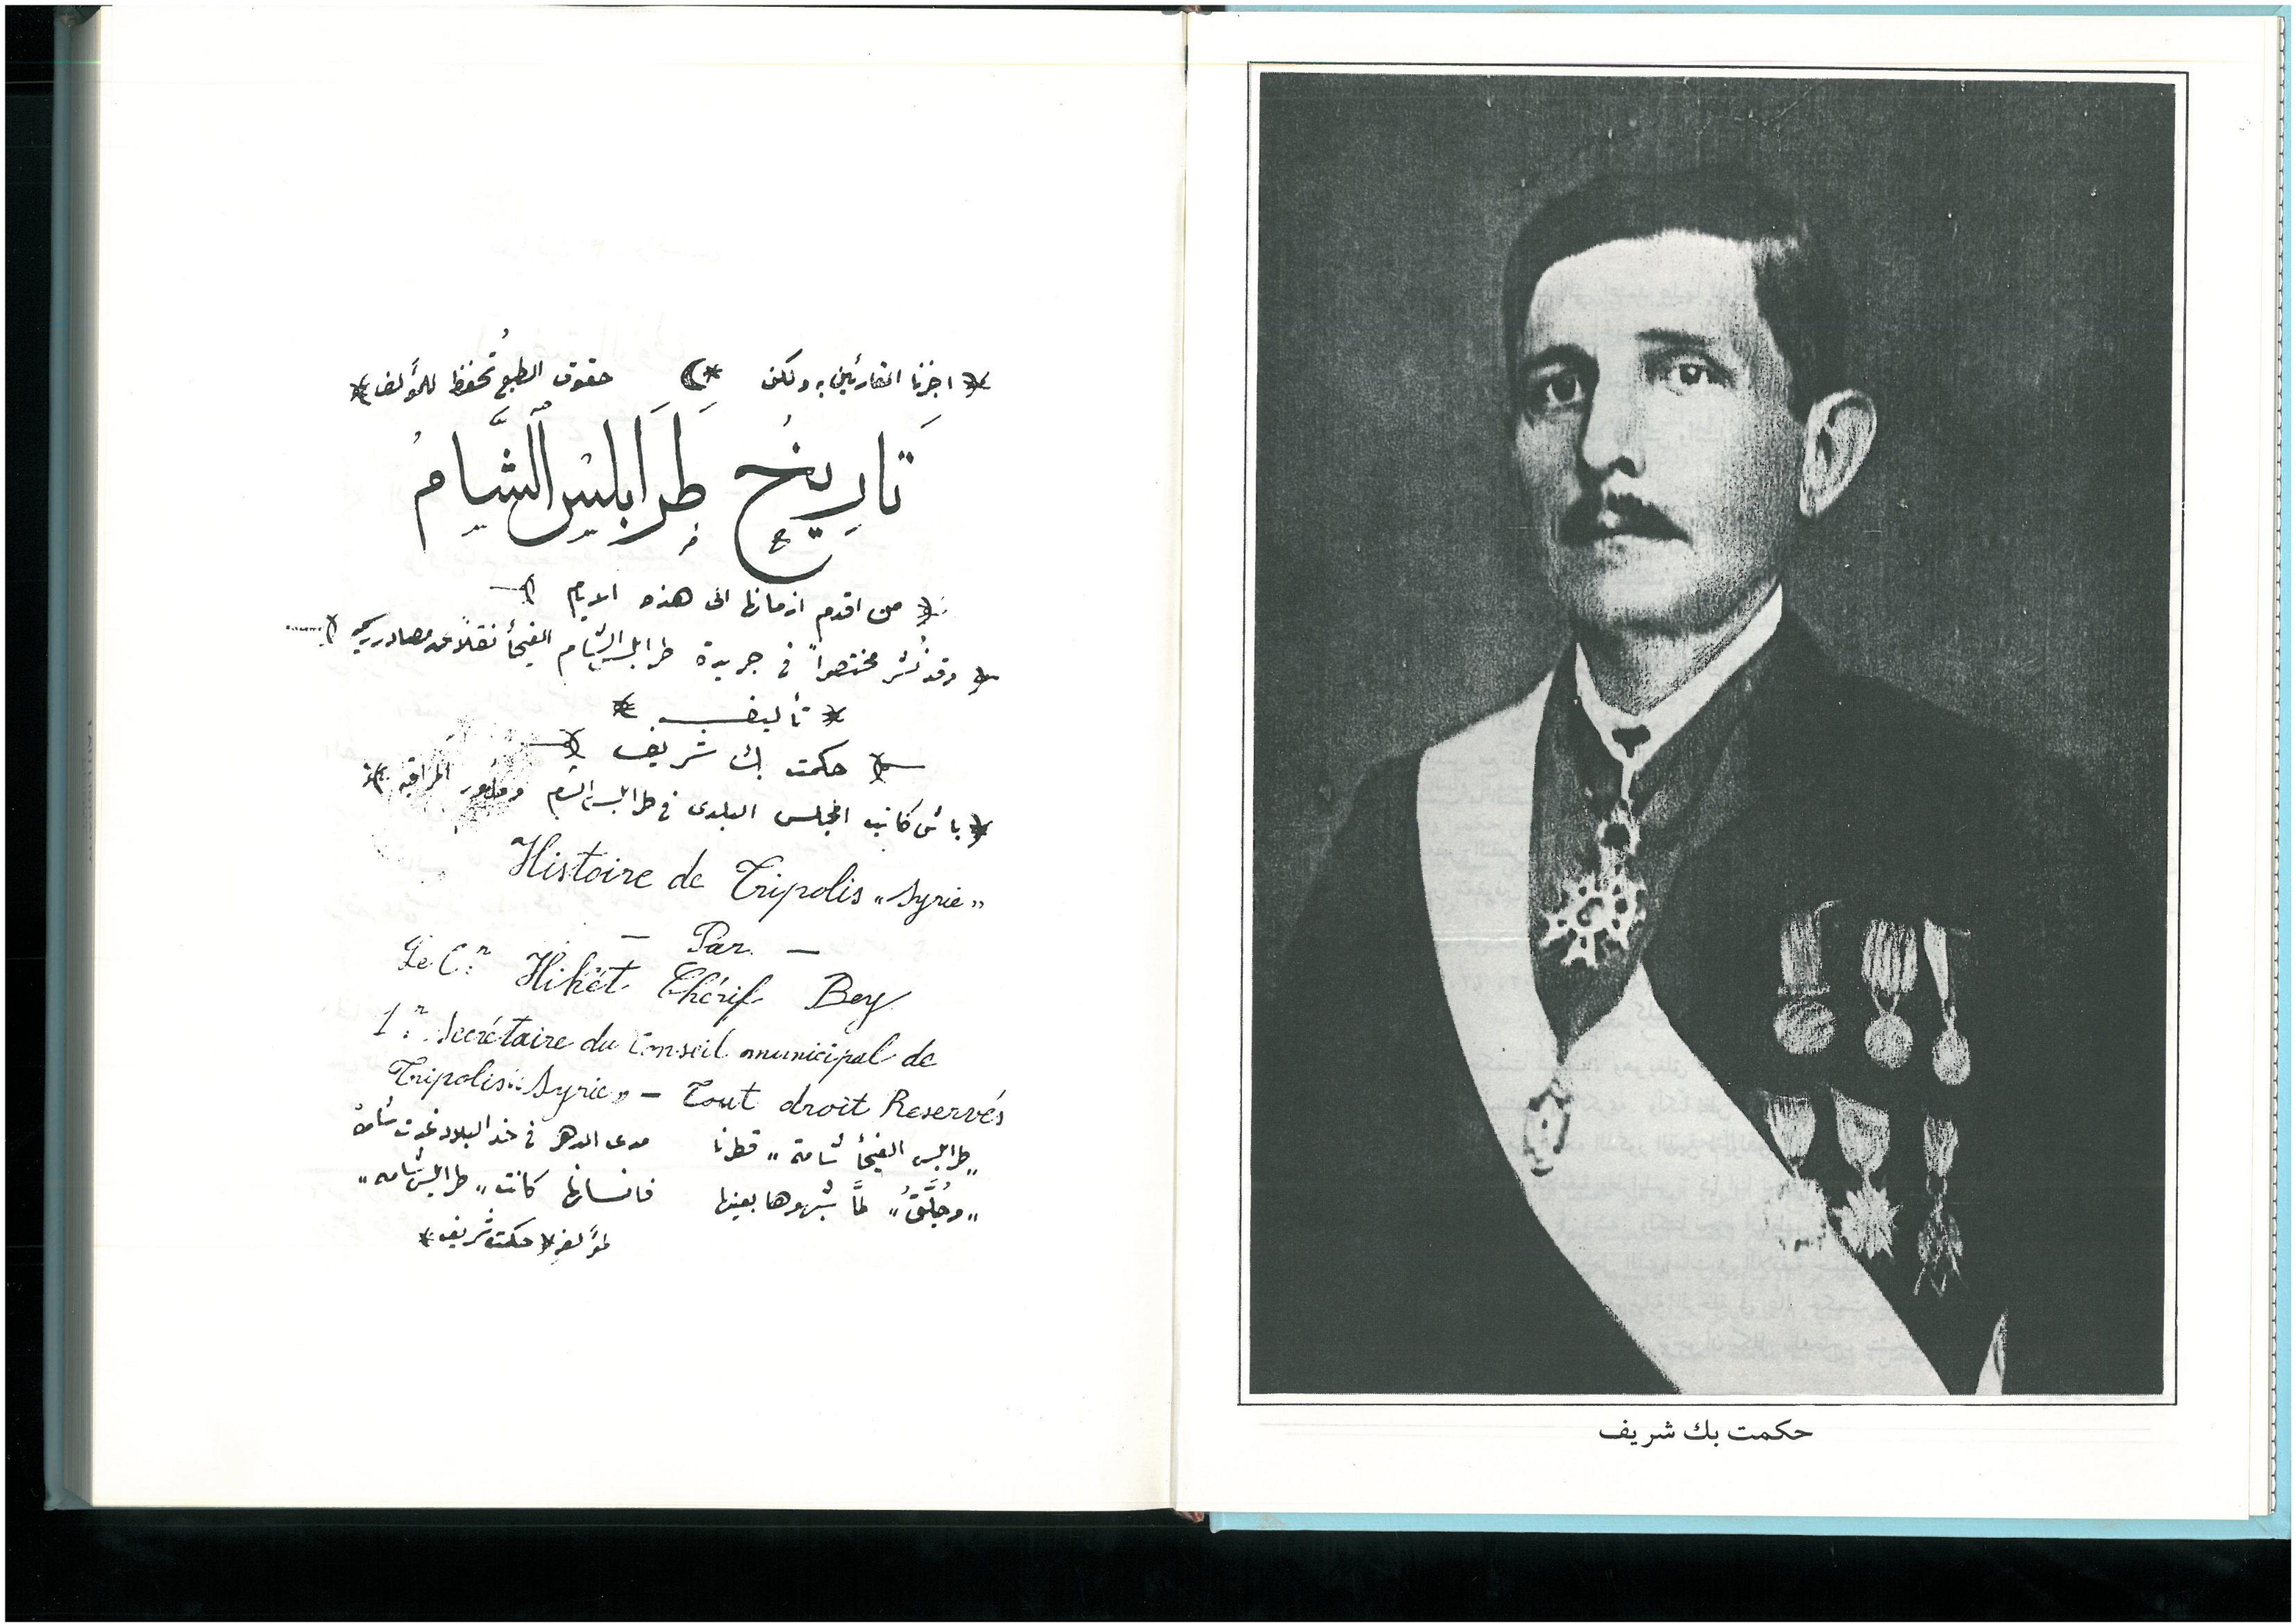 اجزنا القارئين به ولكن حقوق الطبع تحفظ للمؤلف
تَارِيخُ طَرَابلس الشَّامْ
من اقدم ازمانها الى هذه الايام
وقد نُشر مختصراً في جريدة طرابلس الشام الفيحأ نقلاً عن مصادر
تأليف
حكمت بك شريف
باش كاتب المجلس البلدى في طرابلس الشام ومأمور المراقبه
Histoire de Tripolis „Syrie”
— Par —
Le C.r Hikét Chérif Bey
1.r Secrétaire du Conseil municipal de
Tripolis „Syrie” — Tout droit Reservés
„طرابلس الفيحأ شامة„ قطرنا مدى الدهر في خد البلاد غدت شامهْ
„وجُلَّقُ„ لمَّا شبهوها بعينها فانسانها كانت „طرابلس شامه„
لمؤلفه حكمت شريف
حكمت بك شريف